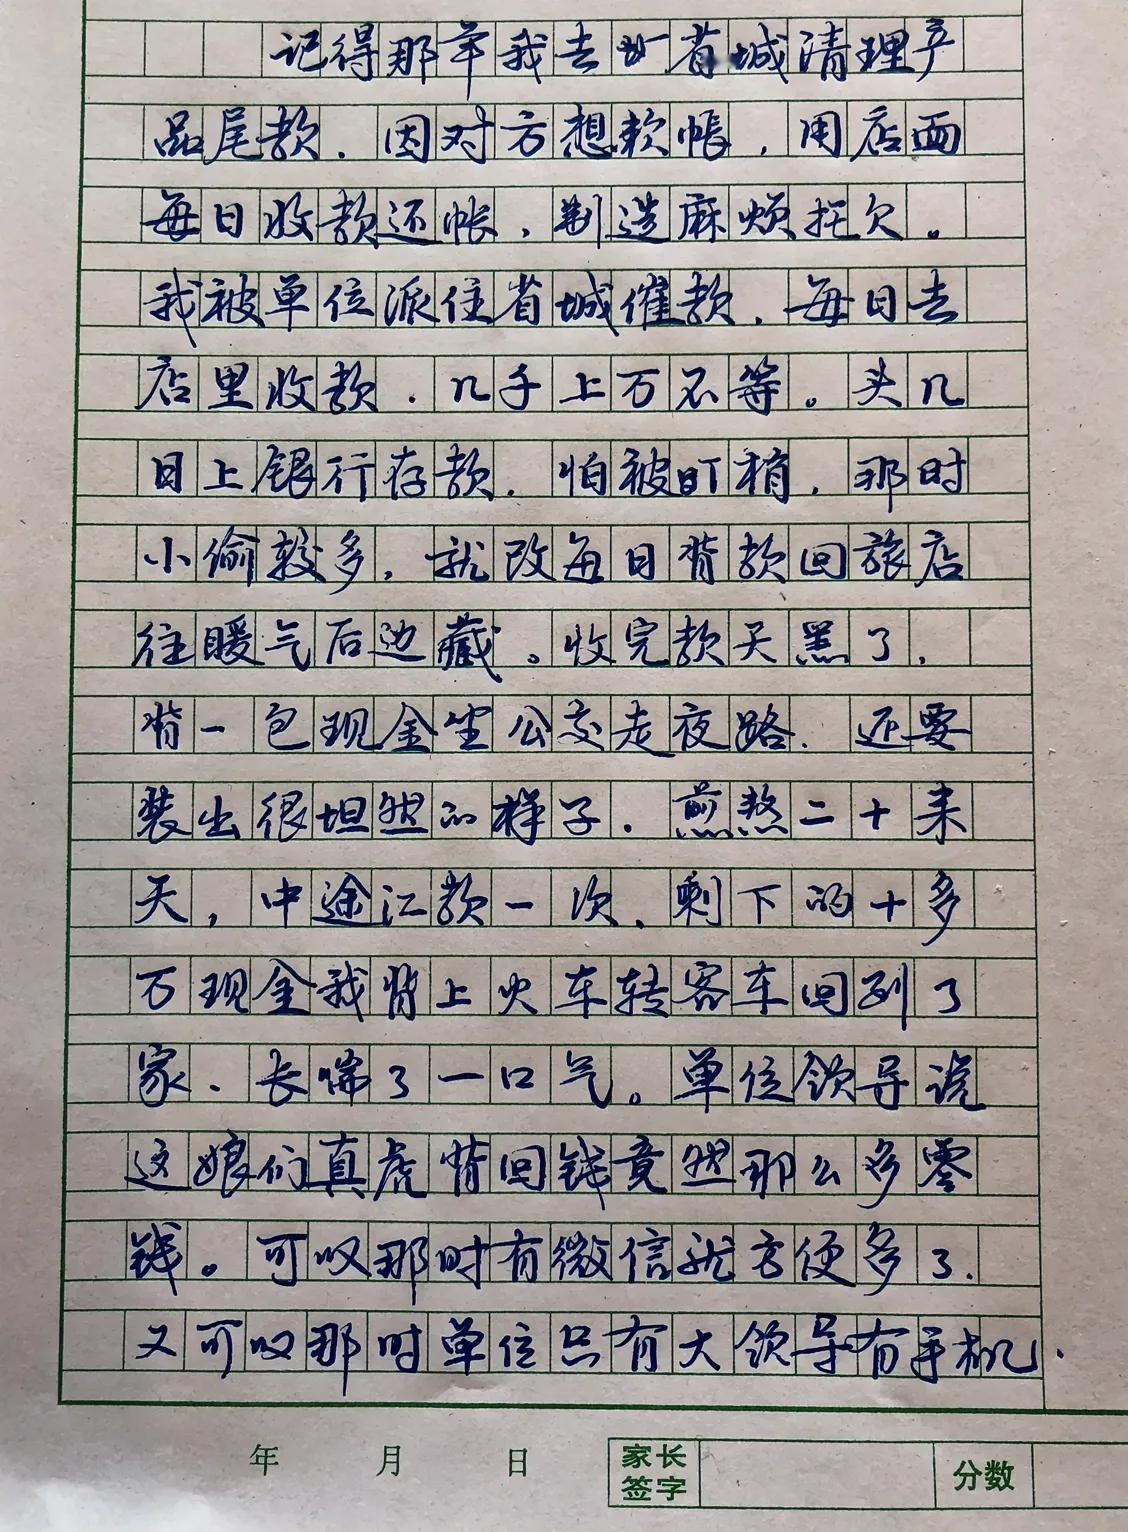 记得那年我去外省城清理产
品尾款.因对方想赖帐,用店面
每日收款还帐,制造麻烦拒欠。
我被单位派住省城催款.每日去
店里收款.几千上万不等。头几
日上银行存款.怕被盯梢.那时
小偷较多,就改每日背款回旅店
往暖气后边藏。收完款天黑了.
背一包现金坐公交走夜路.还要
装出很坦然的样子.煎熬二十来
天,中途汇款一次.剩下的十多
万现金我背上火车转客车回到了
家.长喘了一口气。单位领导说
这娘们真虎背回钱竟然那么多零
钱。可叹那时有微信就方便多了.
又可叹那时单位只有大领导有手机.
年 月 日 家长签字 分数